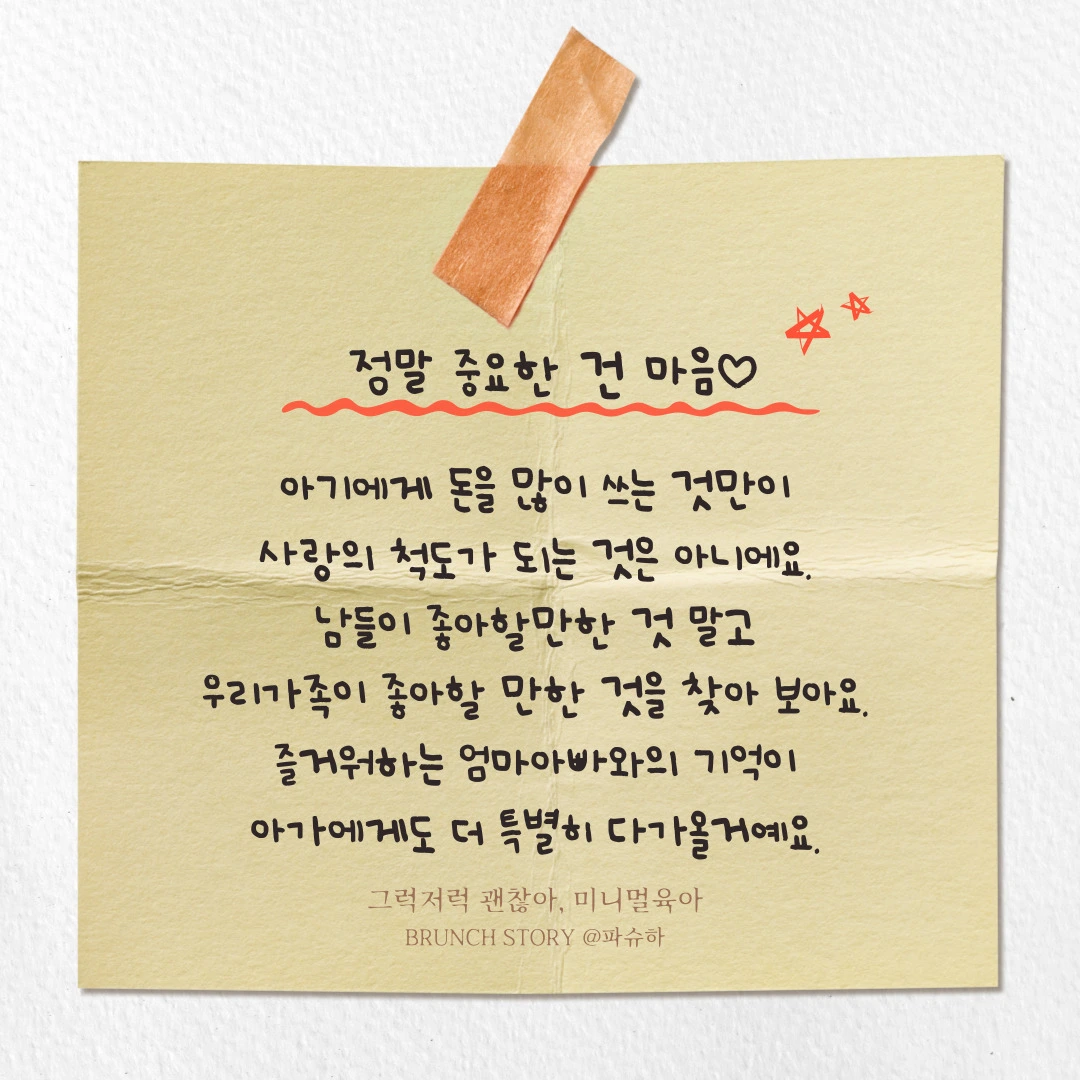 정말 중요한 건 마음♡
아기에게 돈을 많이 쓰는 것만이
사랑의 척도가 되는 것은 아니에요.
남들이 좋아할만한 것 말고
우리가족이 좋아할 만한 것을 찾아 보아요.
즐거워하는 엄마아빠와의 기억이
아가에게도 더 특별히 다가올거예요.
그럭저럭 괜찮아, 미니멀육아
BRUNCH STORY @파슈하